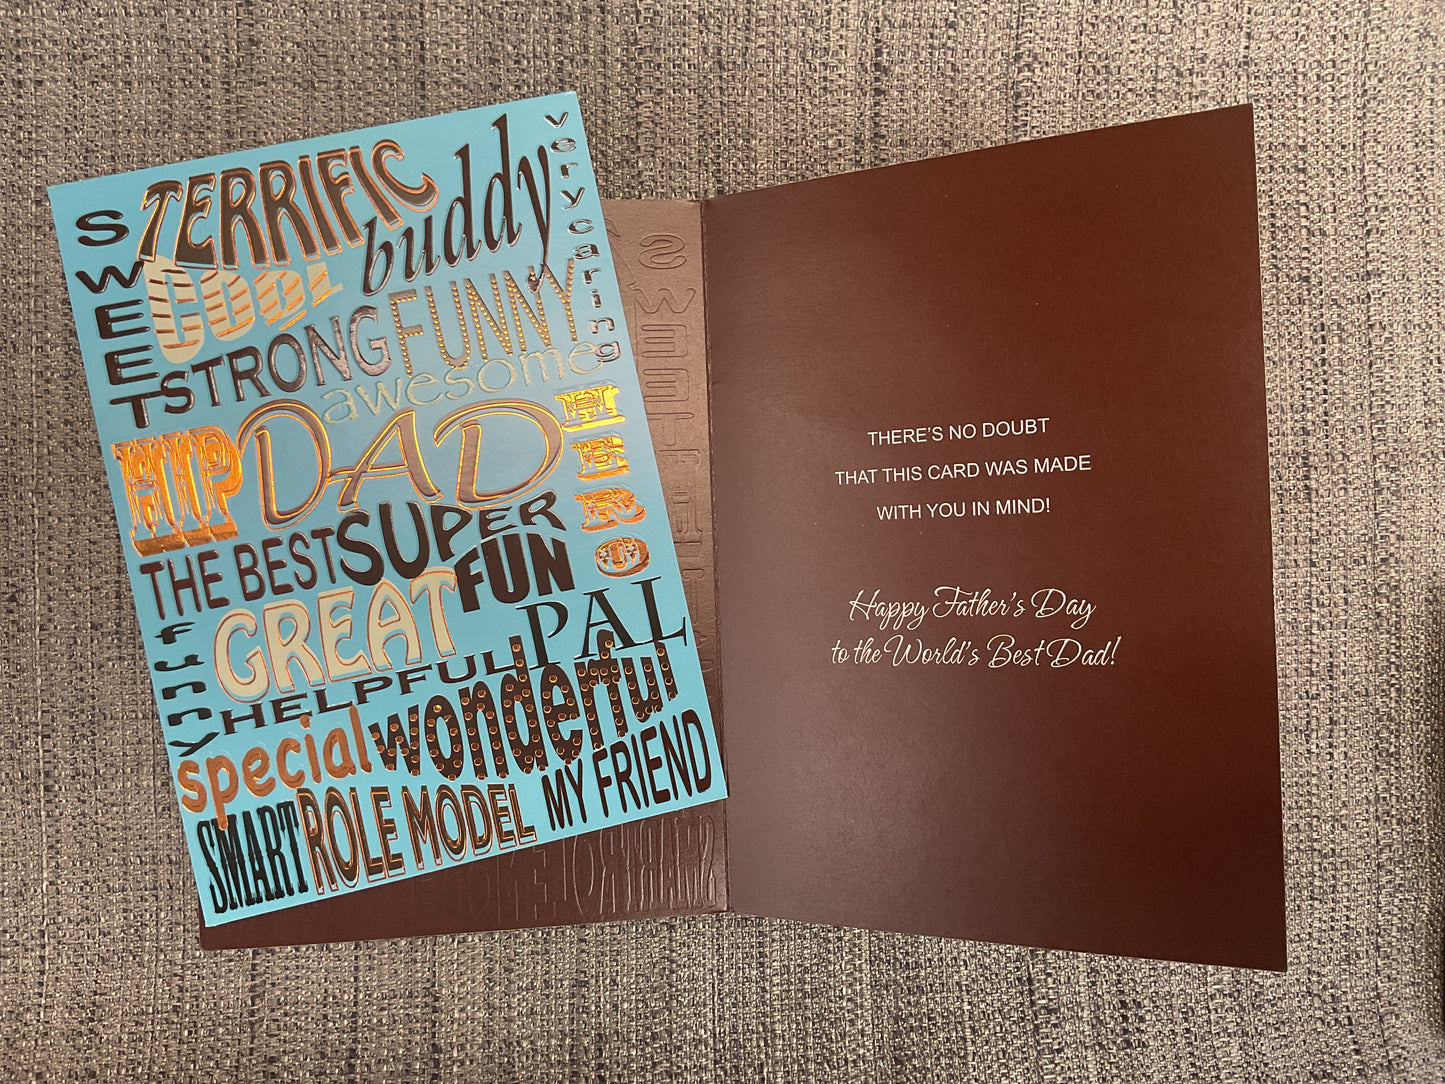 SWEET
TERRIFIC
buddy
very caring
COOL
STRONG
FUNNY
awesome
HIP
DAD
HERO
THE BEST
SUPER
FUN
GREAT
PAL
funny
HELPFUL
wonderful
special
SMART
ROLE MODEL
MY FRIEND
THERE'S NO DOUBT
THAT THIS CARD WAS MADE
WITH YOU IN MIND!
Happy Father's Day
to the World's Best Dad!